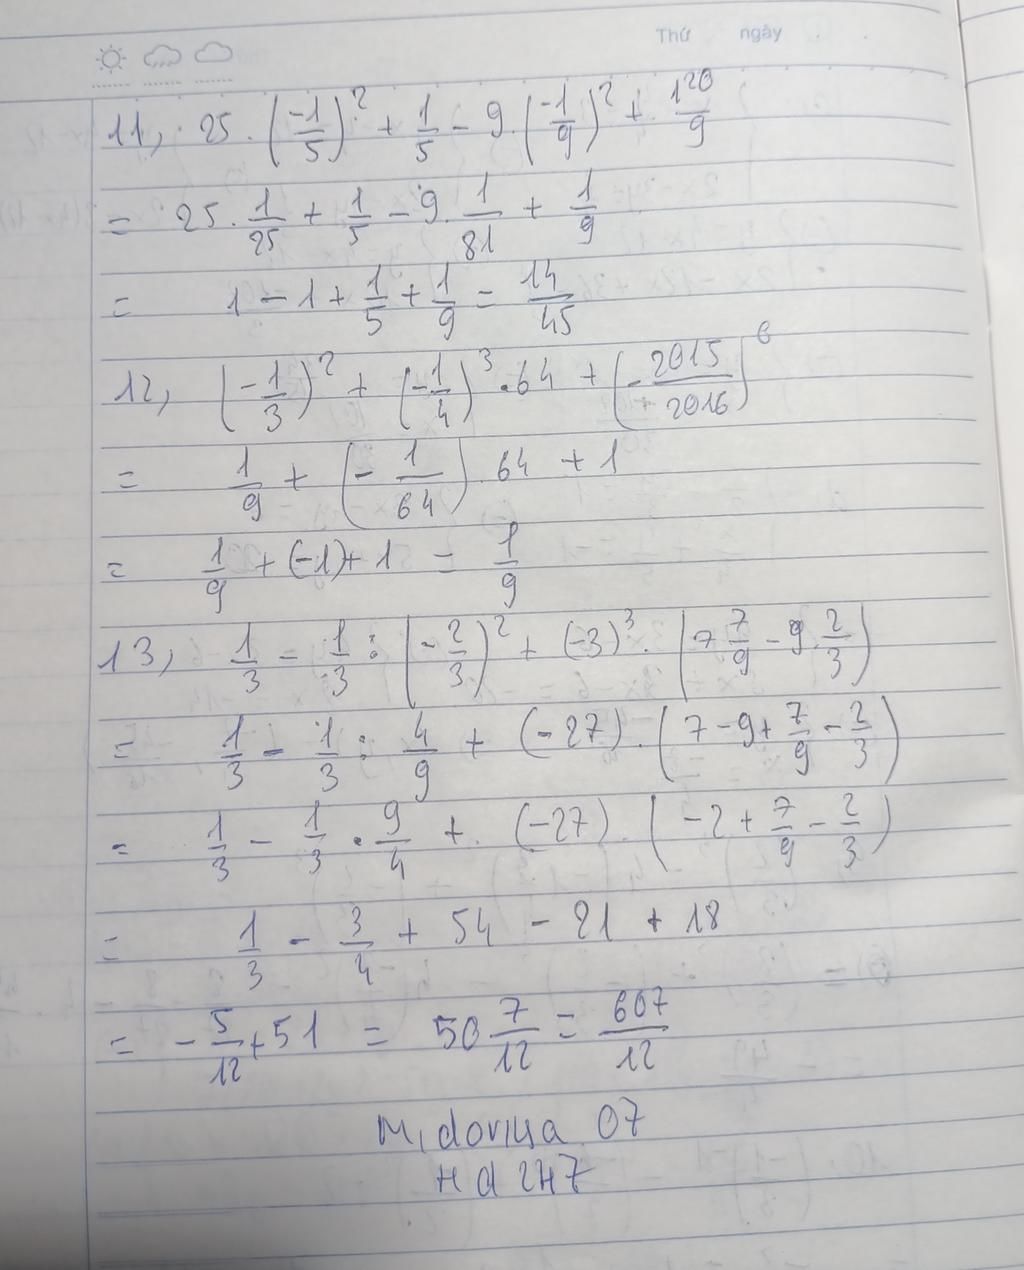 Thứ ngày
11, 25 . (-1/5)² + 1/5 - 9 . (-1/9)² + 1²⁰/9
= 25 . 1/25 + 1/5 - 9 . 1/81 + 1/9
= 1 - 1 + 1/5 + 1/9 = 14/45
12, (-1/3)² + (-1/4)³ . 64 + (-2015/2016)⁰
= 1/9 + (-1/64) . 64 + 1
= 1/9 + (-1) + 1 = 1/9
13, 1/3 - 1/3 : (-2/3)² + (-3)³ . (7 7/9 - 9 2/3)
= 1/3 - 1/3 : 4/9 + (-27) . (7 - 9 + 7/9 - 2/3)
= 1/3 - 1/3 . 9/4 + (-27) . (-2 + 7/9 - 2/3)
= 1/3 - 3/4 + 54 - 21 + 18
= -5/12 + 51 = 50 7/12 = 607/12
07
Hd 247